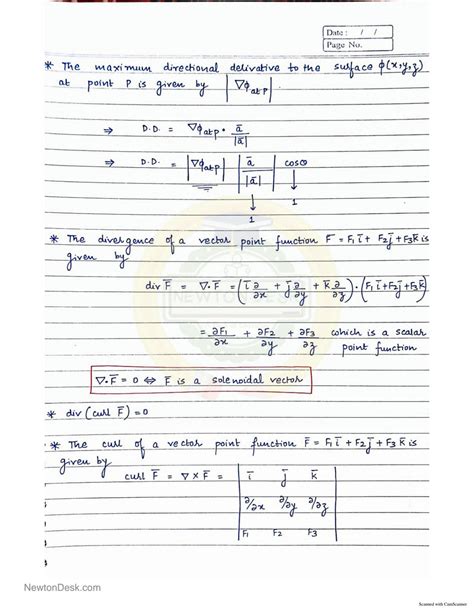 Date : / /
Page No.
* The maximum directional delivative to the surface ϕ(x,y,z)
at point P is given by |∇ϕ at P|
⇒ D.D. = ∇ϕ at P · ā/|ā|
⇒ D.D. = |∇ϕ at P| |ā/|ā|| cosθ
↓ ↓
1 1
* The divergence of a vector point function F̄ = F₁ī + F₂j̄ + F₃k̄ is
given by
div F̄ = ∇·F̄ = (ī ∂/∂x + j̄ ∂/∂y + k̄ ∂/∂z)·(F₁ī+F₂j̄+F₃k̄)
NEWTONDESK
= ∂F₁/∂x + ∂F₂/∂y + ∂F₃/∂z which is a scalar
point function
∇·F̄ = 0 ⇔ F̄ is a solenoidal vector
* div (curl F̄) = 0
* The curl of a vector point function F̄ = F₁ī + F₂j̄ + F₃k̄ is
given by
curl F̄ = ∇ × F̄ = | ī j̄ k̄ |
∂/∂x ∂/∂y ∂/∂z
F₁ F₂ F₃
NewtonDesk.com
Scanned with CamScanner